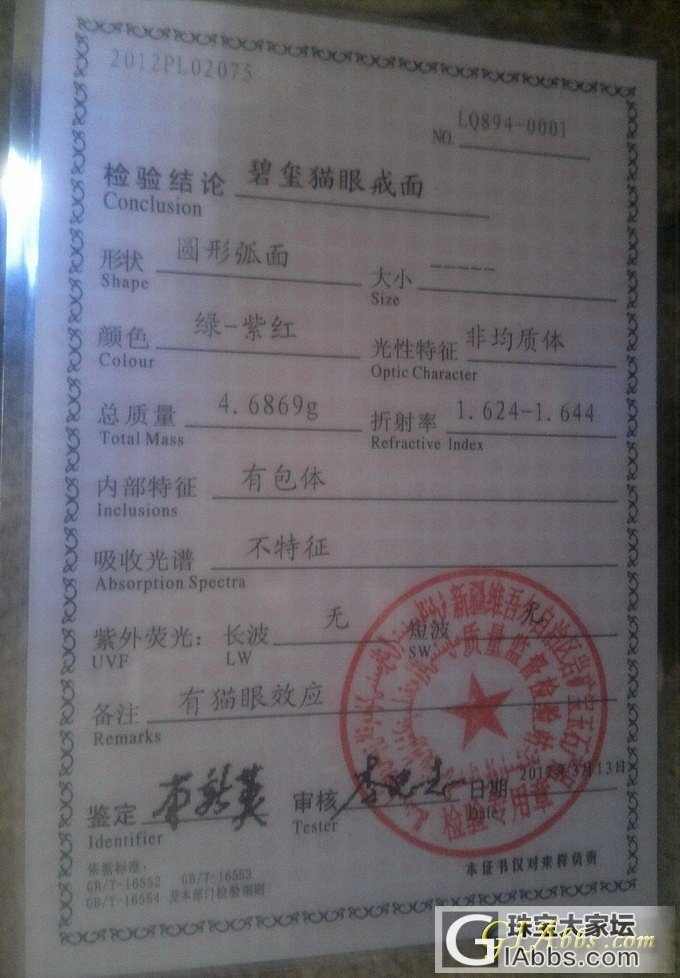 2012PL02075
NO. LQ894-0001
检验结论 碧玺猫眼戒面
Conclusion
形状 圆形弧面 大小 -----
Shape Size
颜色 绿-紫红 光性特征 非均质体
Colour Optic Character
总质量 4.6869g 折射率 1.624-1.644
Total Mass Refractive Index
内部特征 有包体
Inclusions
吸收光谱 不特征
Absorption Spectra
紫外荧光: 长波 无 短波 无
UVF LW SW
备注 有猫眼效应
Remarks
新疆维吾尔自治区岩矿宝玉石产品
质量监督检验站
检验专用章
鉴定 审核 日期 2012年3月13日
Identifier Tester Date
依据标准:
GB/T-16552 GB/T-16553
GB/T-16554 及本部门检验细则
本证书仅对来样负责
珠宝大家坛
GIAbbs.com
GIAbbs.com